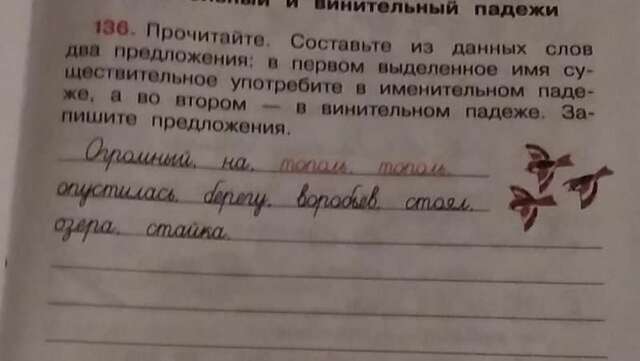 и винительный падежи
136. Прочитайте. Составьте из данных слов
два предложения: в первом выделенное имя су-
ществительное употребите в именительном паде-
же, а во втором — в винительном падеже. За-
пишите предложения.
Огромный, на, тополь, тополь,
опустилась, берегу, воробьёв, стоял,
озера, стайка.